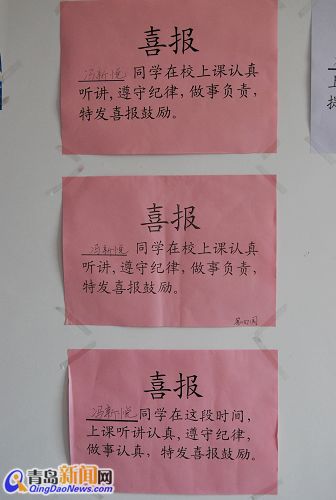 喜报
冯新悦 同学在校上课认真
听讲,遵守纪律,做事负责,
特发喜报鼓励。
喜报
冯新悦 同学在校上课认真
听讲,遵守纪律,做事负责,
特发喜报鼓励。
喜报
冯新悦 同学在这段时间,
上课听讲认真,遵守纪律,
做事认真,特发喜报鼓励。
青岛新闻网
QingDaoNews.com